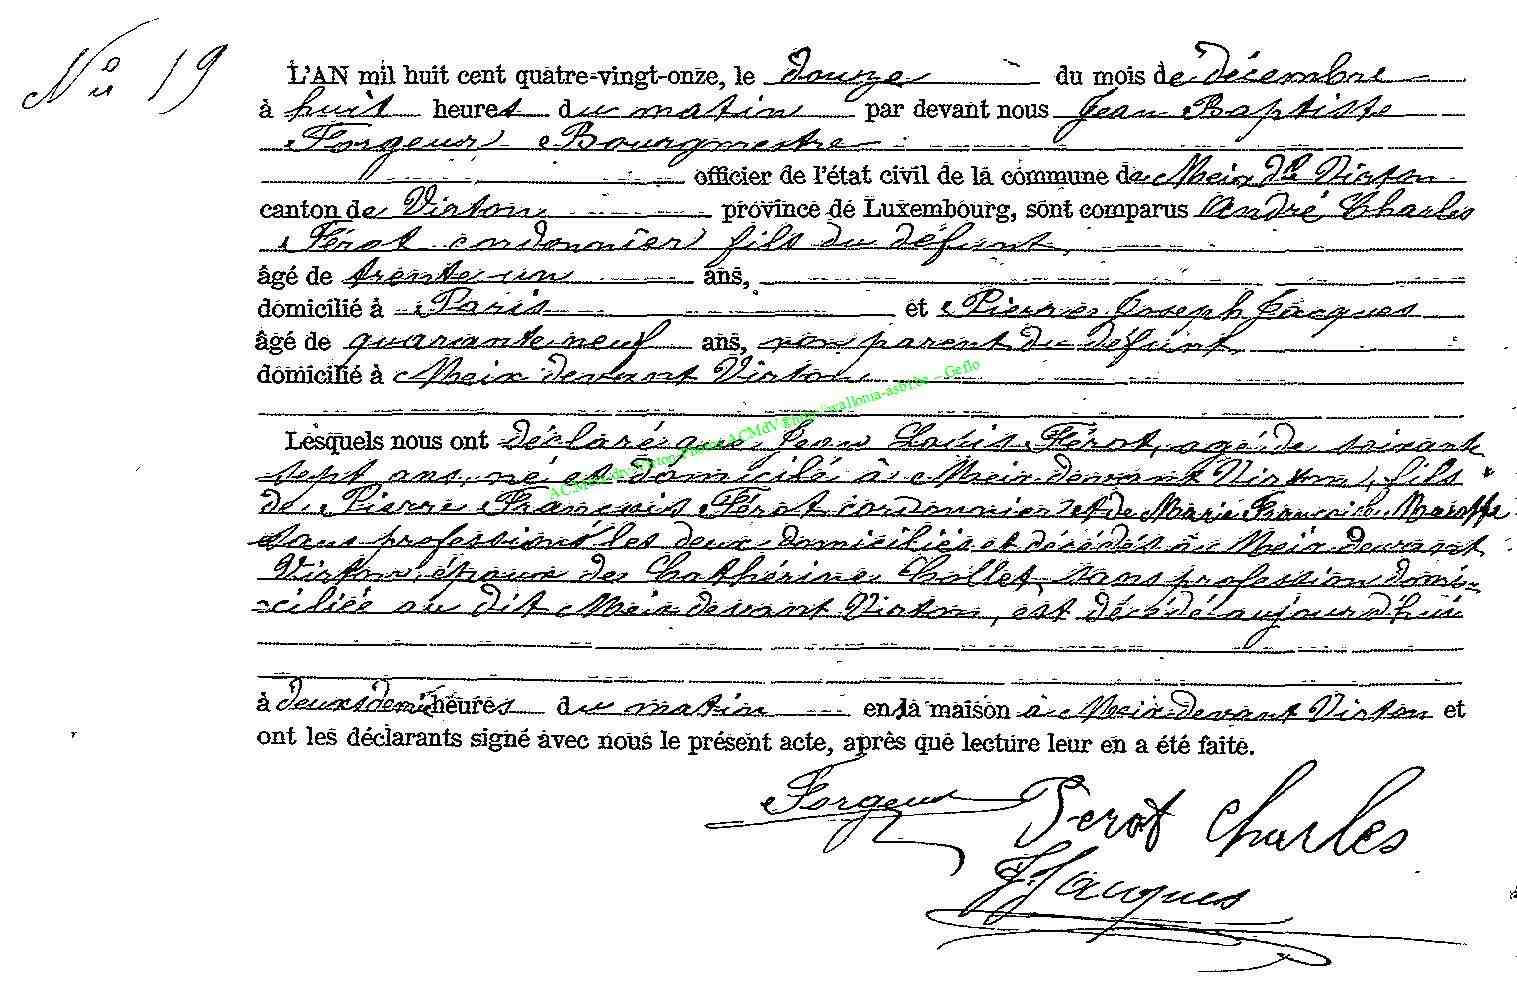 No 19
L'AN mil huit cent quatre-vingt-onze, le douze du mois de décembre
à huit heures du matin par devant nous Jean Baptiste
Forgeur Bourgmestre
officier de l'état civil de la commune de Meix dt Virton
canton de Virton province de Luxembourg, sont comparus André Charles
Férot cordonnier fils du défunt
âgé de trente un ans,
domicilié à Paris et Pierre Joseph Jacques
âgé de quarante neuf ans, non parent du défunt
domicilié à Meix devant Virton
Lesquels nous ont déclaré que Jean Louis Férot, agé de soixante
sept ans, né et domicilié à Meix devant Virton, fils
de Pierre François Férot cordonnier et de Marie Françoise
sans profession les deux domiciliés et décédés à Meix devant
Virton, époux de Cathérine Collet, sans profession domi-
-ciliée au dit Meix devant Virton, est décédé aujourd'hui
à deux et demi heures du matin en la maison à Meix devant Virton et
ont les déclarants signé avec nous le présent acte, après que lecture leur en a été faite.
Forgeur Ferot Charles
JJacques